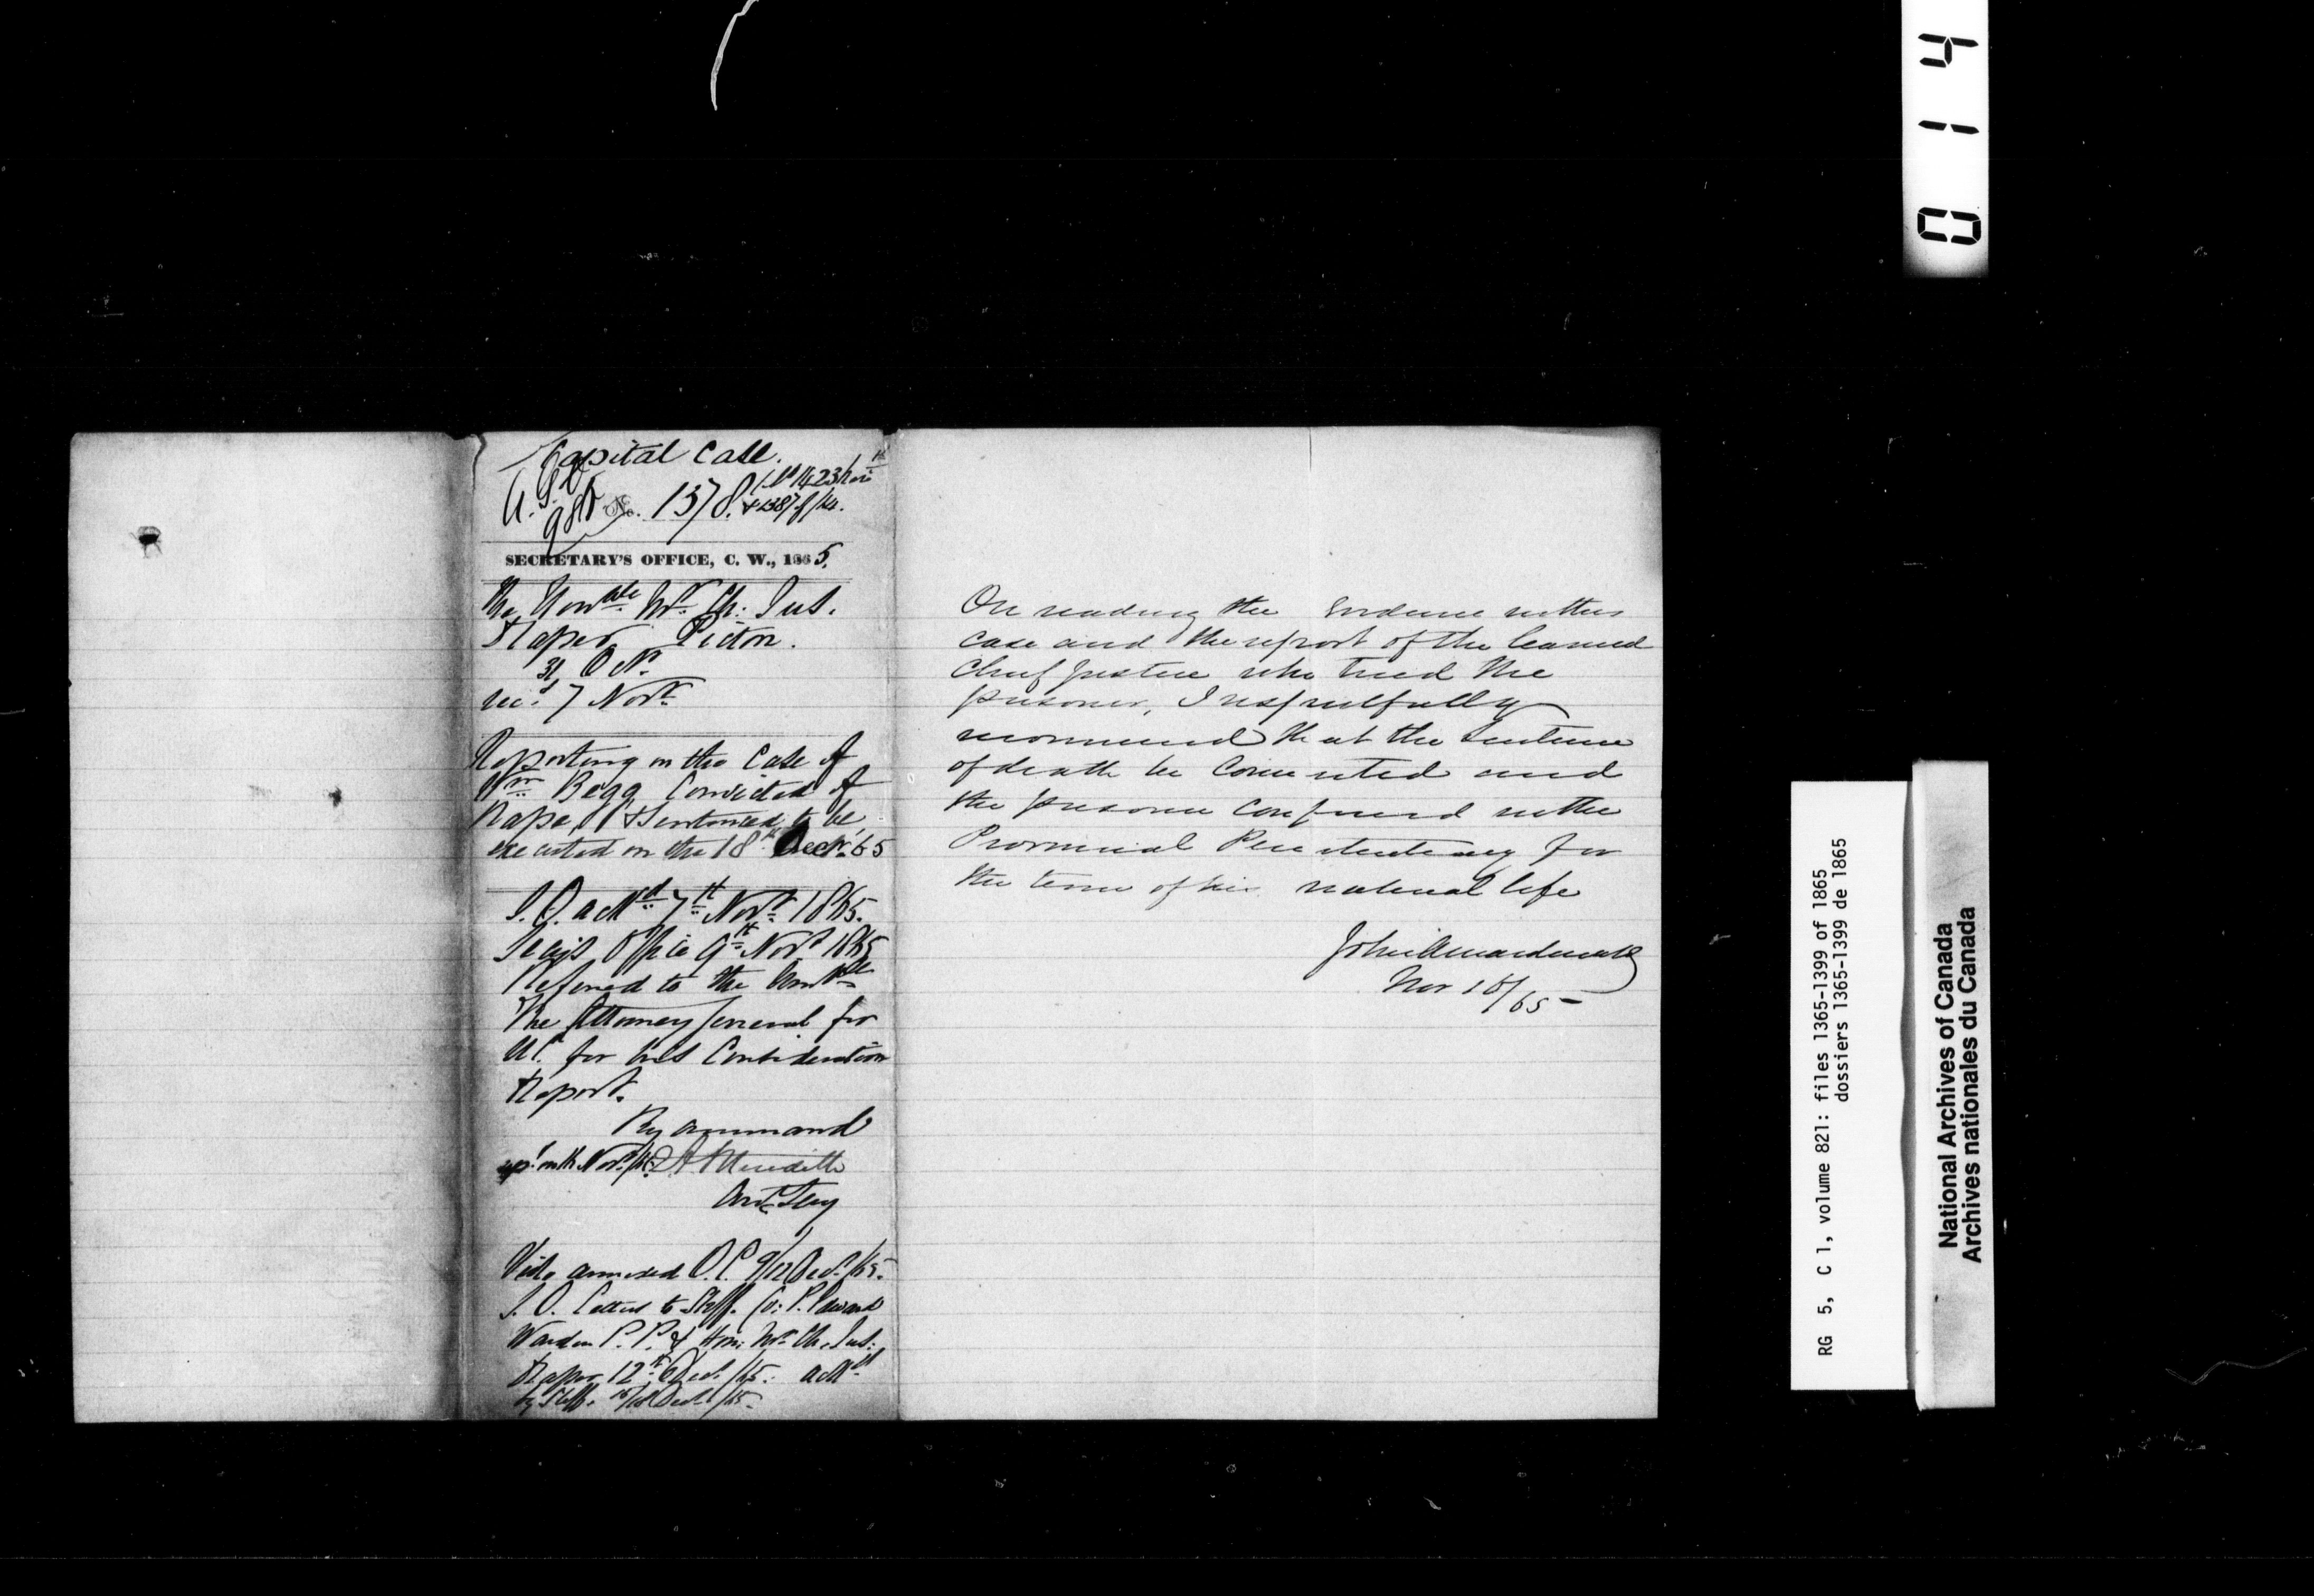 Capital Case.
No. 1378.
SECRETARY'S OFFICE, C. W., 1865.
The Honble Mr. Ch: Jus.
Draper Picton.
31 Oct.
rec.d 7 Novr.
Reporting on the Case of
Wm. Begg Convicted of
Rape, & Sentenced to be
executed on the 18th Decr. 65
S.O. ackd. 7th Novr. 1865.
Secy's Office 9th Novr. 1865
Referred to the Honble
The Attorney General for
U.C. for his Consideration
& Report.
By Command
E A Meredith
Asst. Secy
Vide annexed O.C. 9/12 Decr. /65.
S.O. Letters to Sheff. Co: P. Edward
Warden P.P. & Hon: Mr. Ch. Jus:
Draper 12th Decr. /65. ackd.
by Sheff. Decr. /65.
On reading the Evidence in this
case and the report of the learned
Chief Justice who tried the
prisoner, I respectfully
recommend that the sentence
of death be commuted and
the prisoner confined in the
Provincial Penitentiary for
the term of his natural life
John A Macdonald
Nov 15/65
0 1 4
RG 5, C 1, volume 821: files 1365-1399 of 1865
dossiers 1365-1399 de 1865
National Archives of Canada
Archives nationales du Canada